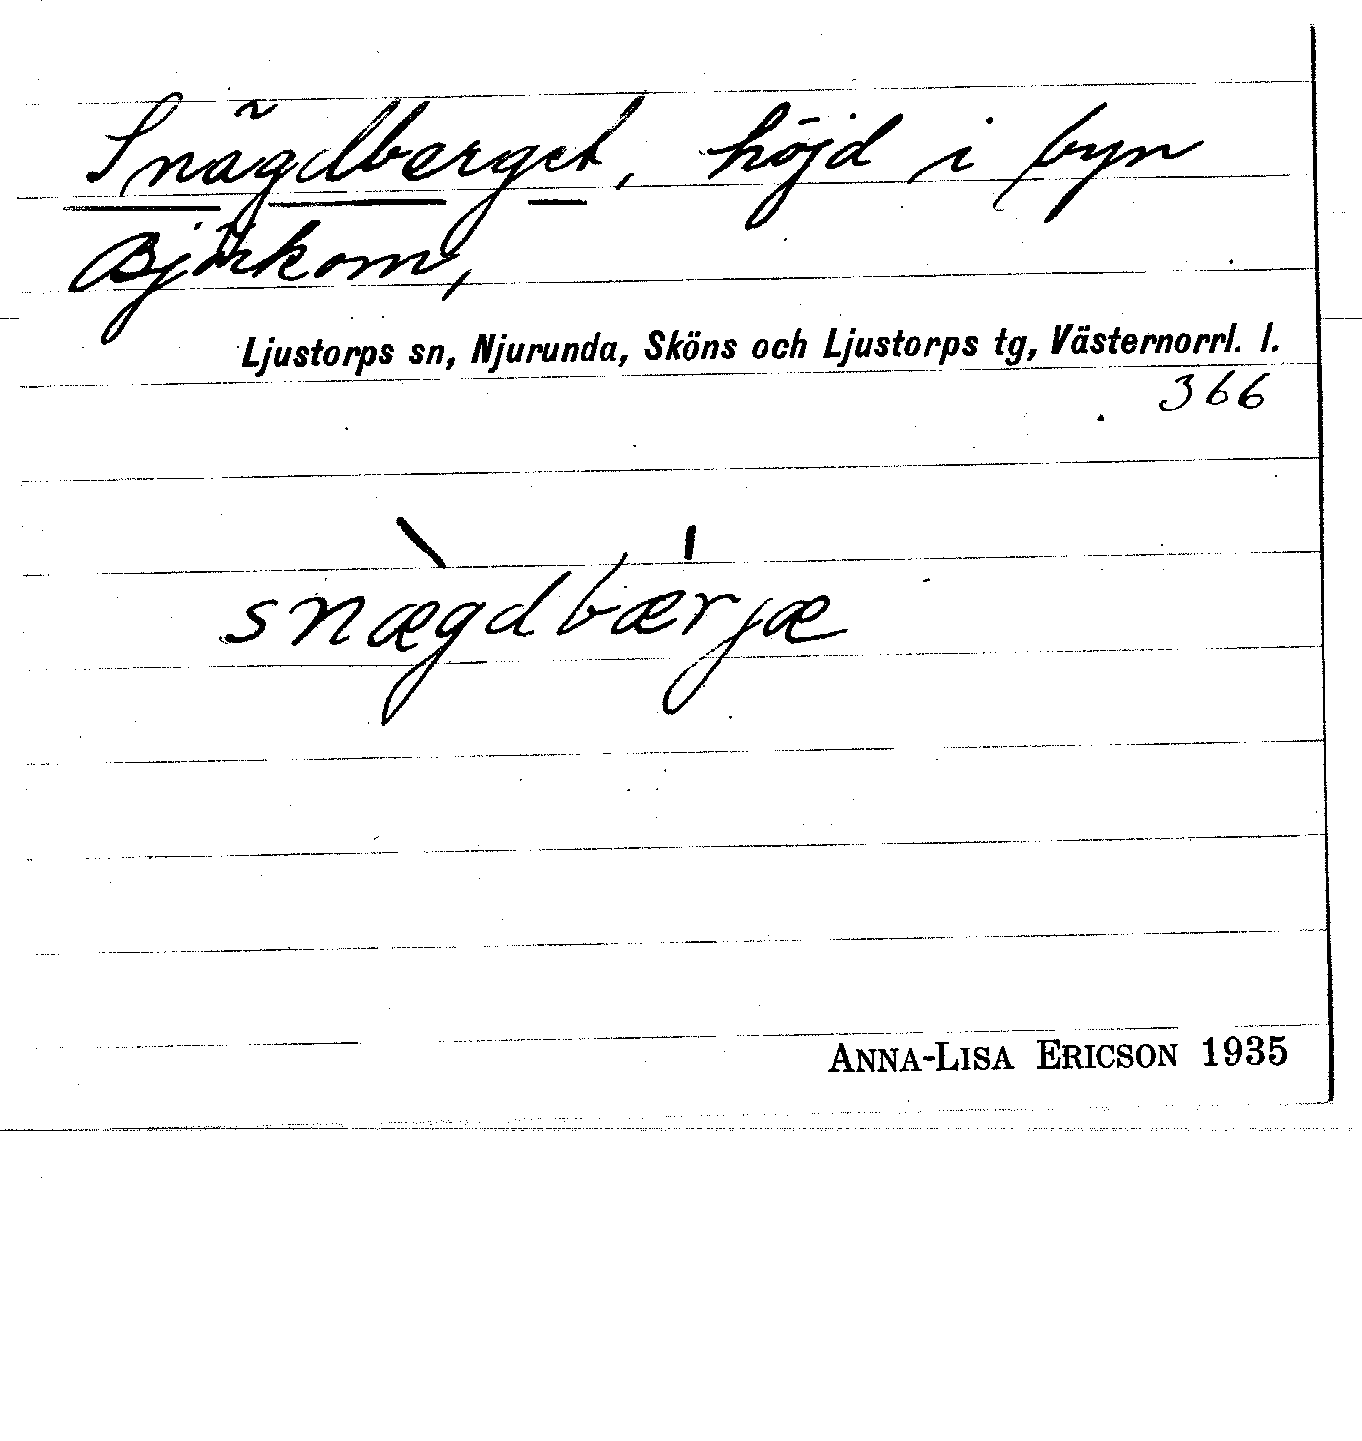 Snägdberget, höjd i byn
Björkom,
Ljustorps sn, Njurunda, Sköns och Ljustorps tg, Västernorrl. l.
366
snægdbærjæ
ANNA-LISA ERICSON 1935